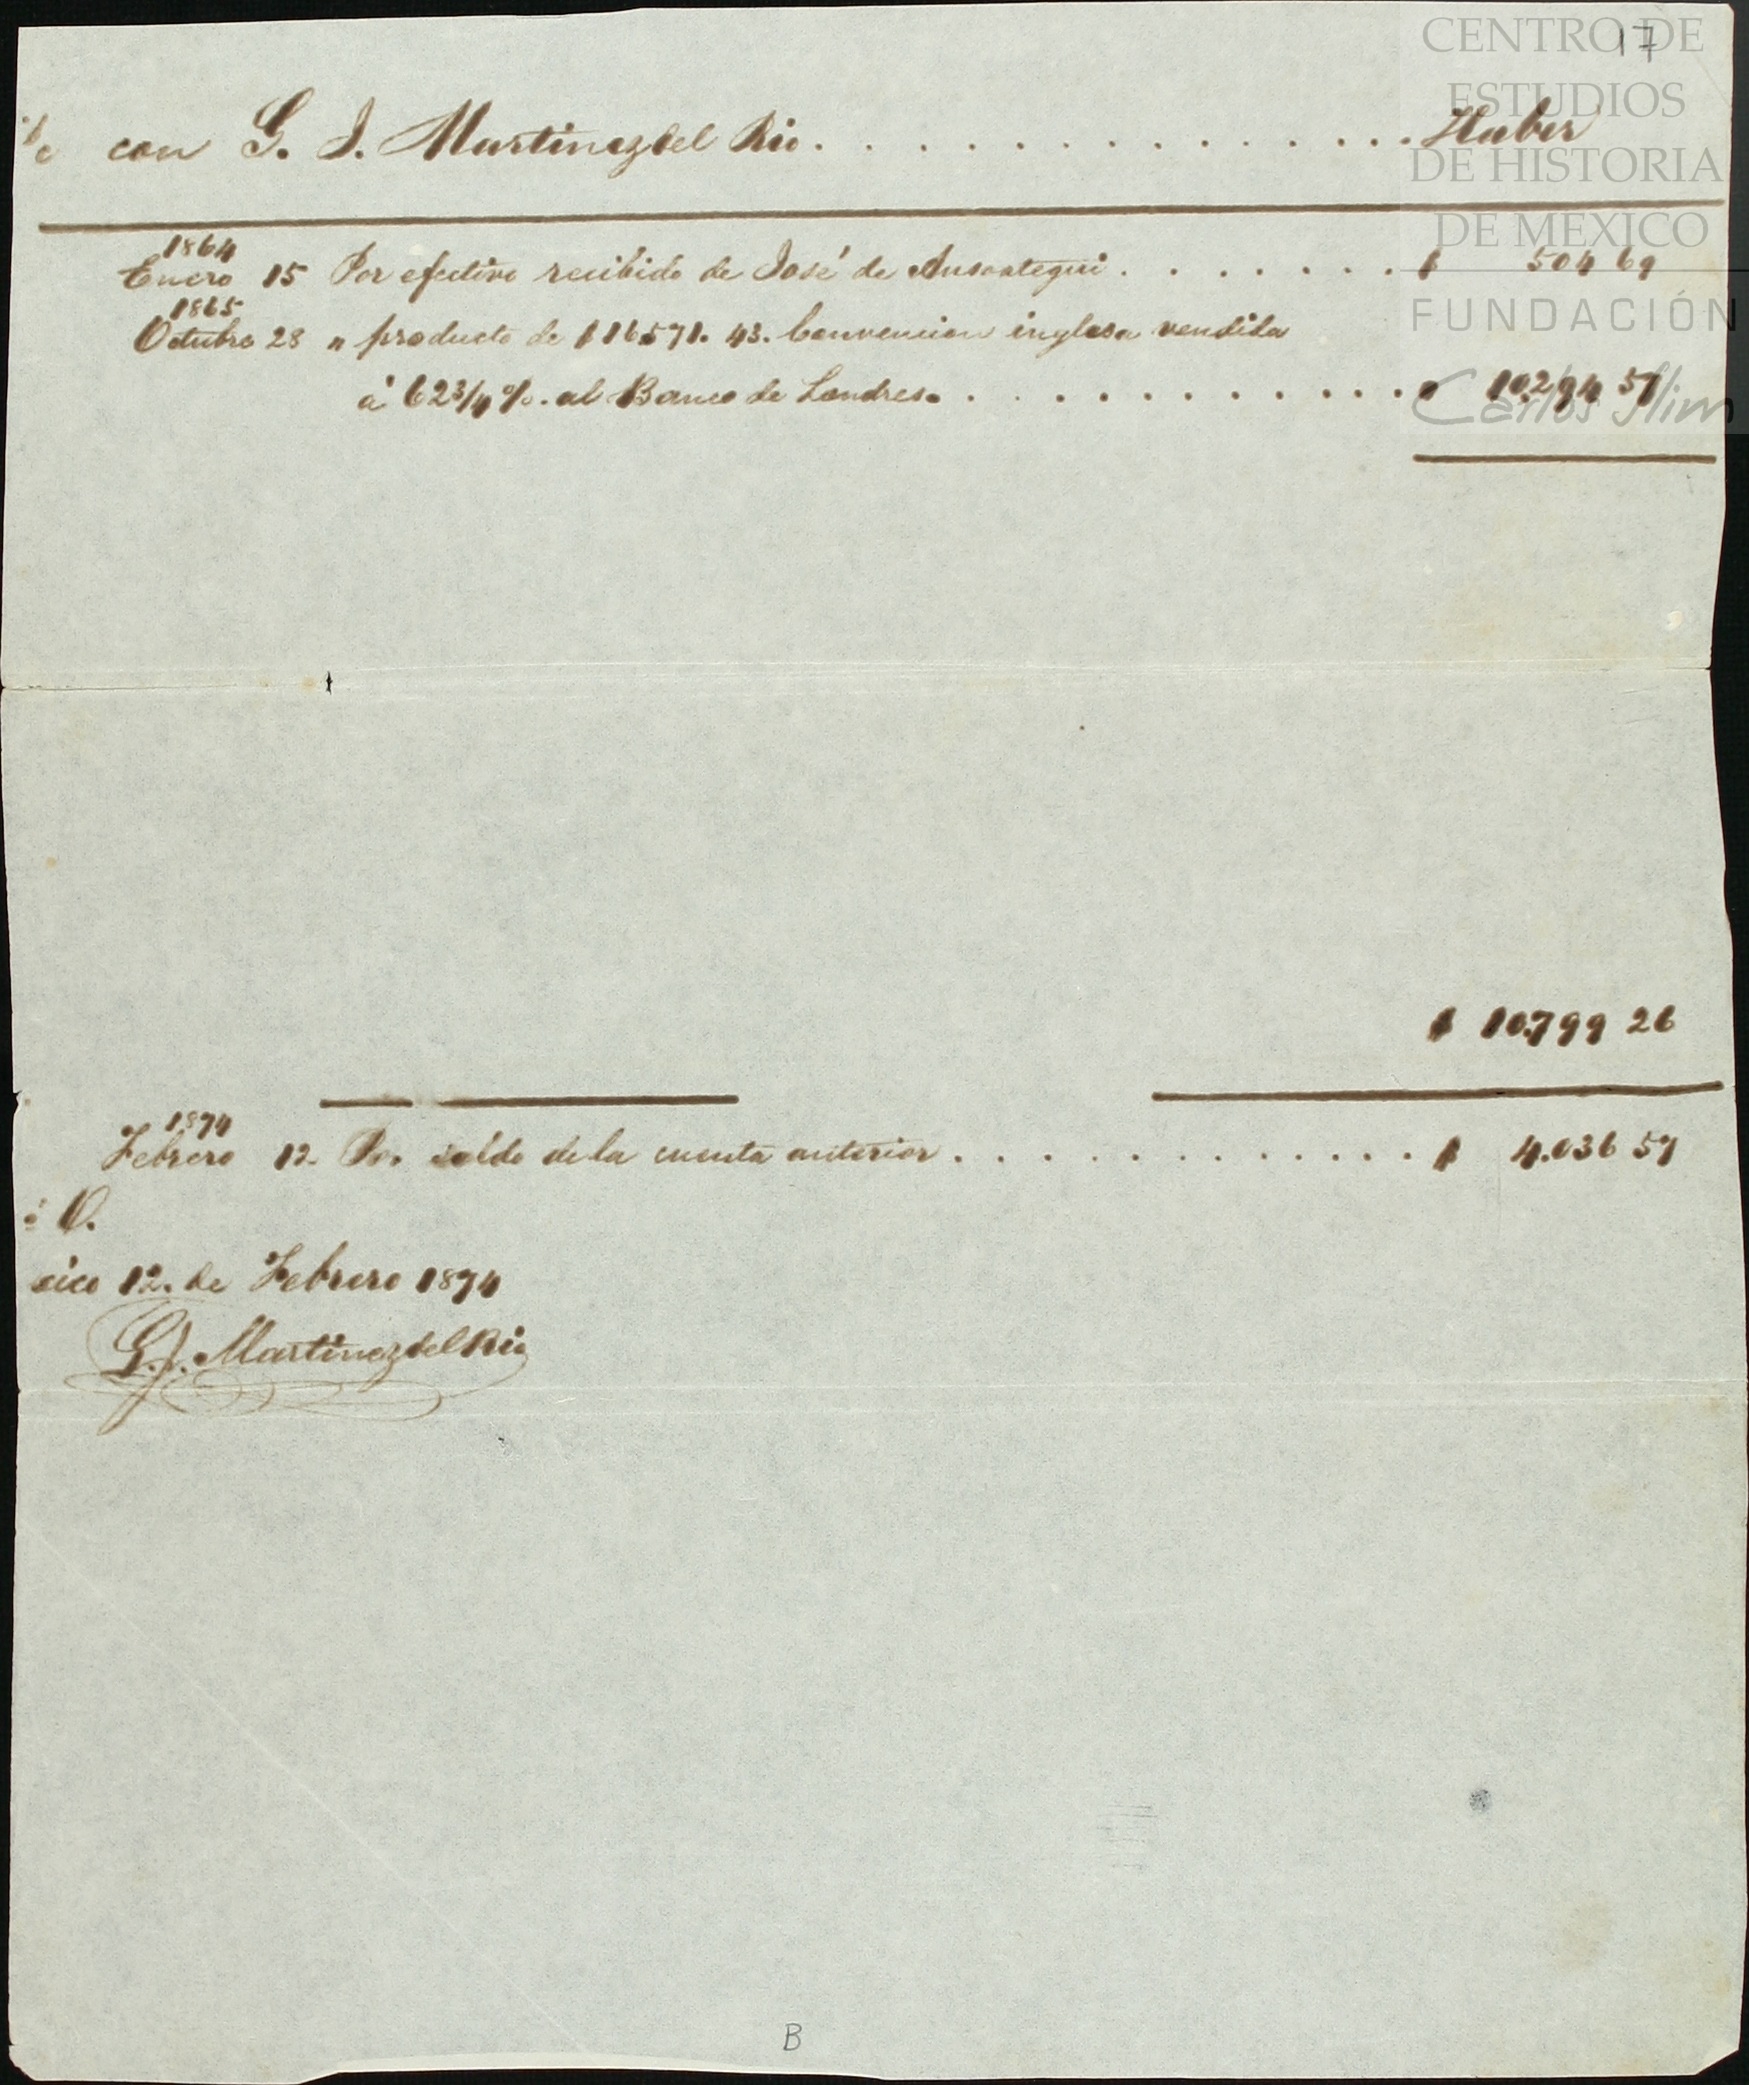 17
CENTRO DE
ESTUDIOS
DE HISTORIA
DE MEXICO
FUNDACIÓN
Carlos Slim
c con G. J. Martinez del Rio. . . . . . . . . . . . . . . . Haber
1864
Enero 15 Por efectivo recibido de José de Ansoategui . . . . . . . $ 504 69
1865
Octubre 28 " producto de $16571. 43. Convencion inglesa vendida
á 62 3/4 %. al Banco de Londres. . . . . . . . . . . . . " 10.294 57
$ 10.799 26
1874
Febrero 12. Por saldo de la cuenta anterior . . . . . . . . . . . . . $ 4.036 57
ó O.
xico 12. de Febrero 1874
G. J. Martinez del Rio
B